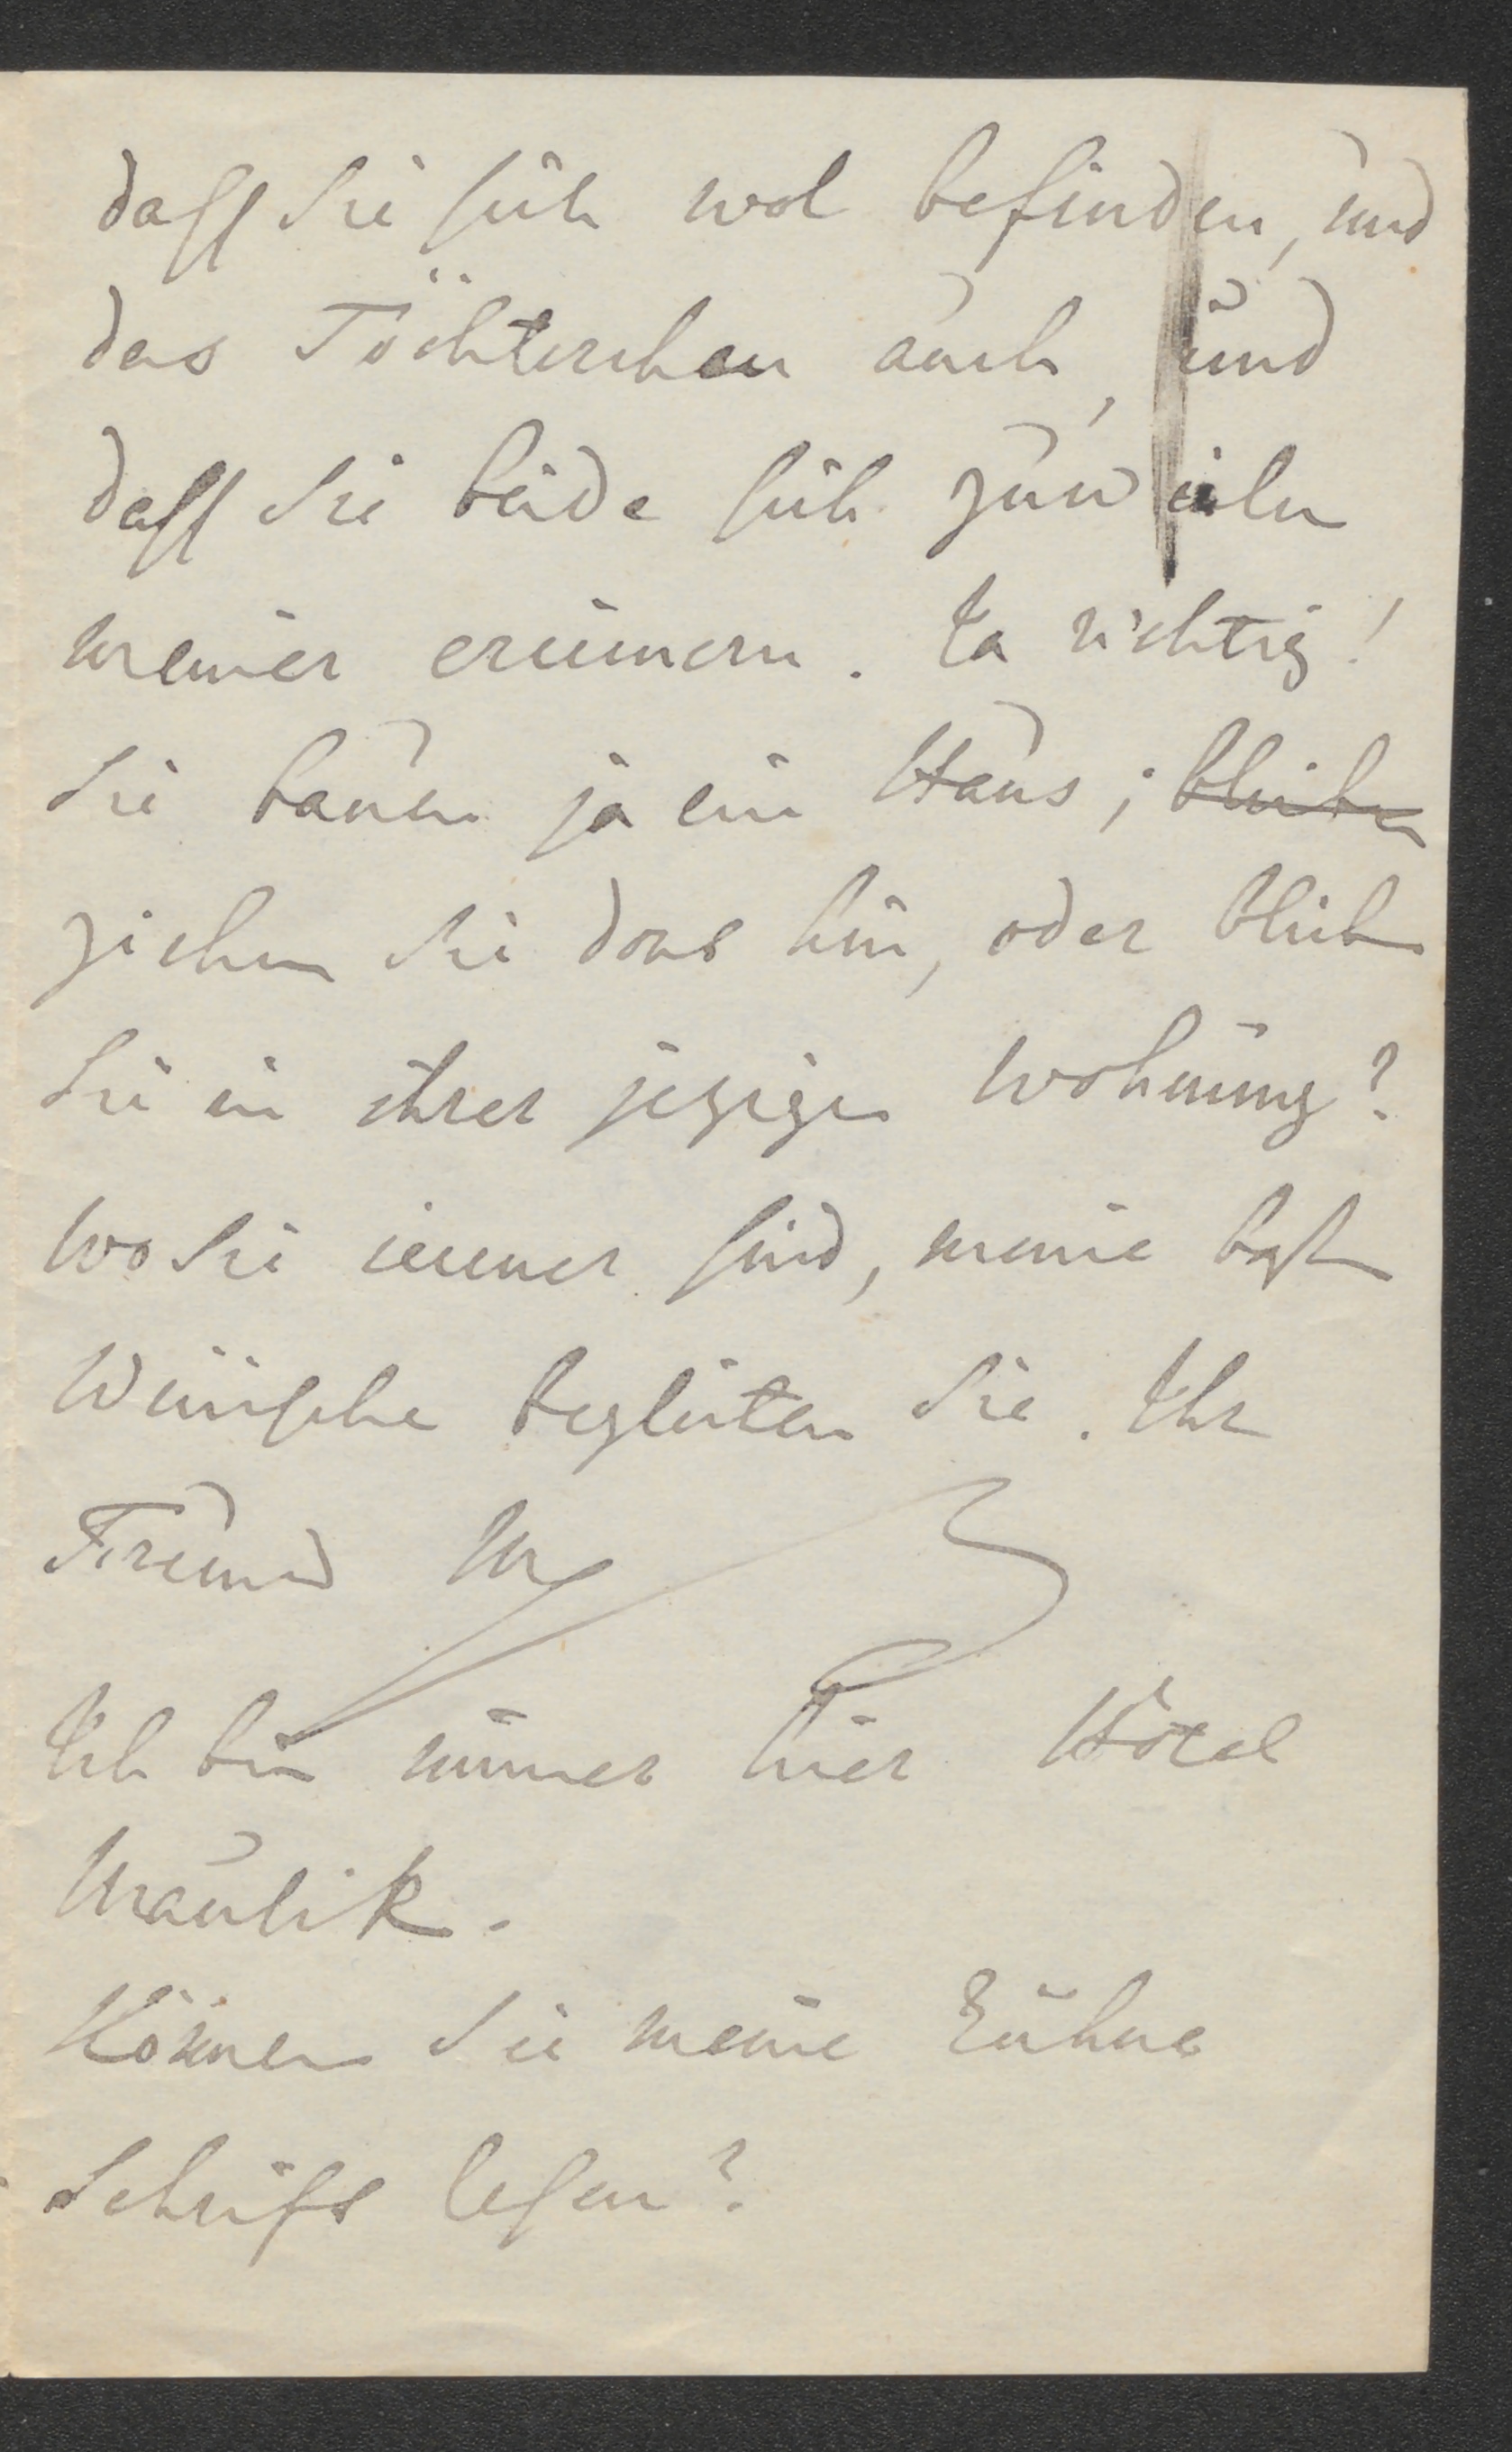 daß Sie sich wol befinden, und
das Töchterchen auch, und
daß Sie beide sich zuweilen
meiner erinnern. Ja richtig!
Sie bauen ja ein Haus; bleiben
ziehen Sie dort hin, oder bleiben
Sie in ihrer jezigen Wohnung?
Wo Sie immer sind, meine besten
Wünsche begleiten Sie. Ihr
Freund
Ich bin immer hier Hôtel
Maulik.
Können Sie meine
Schrift lesen?